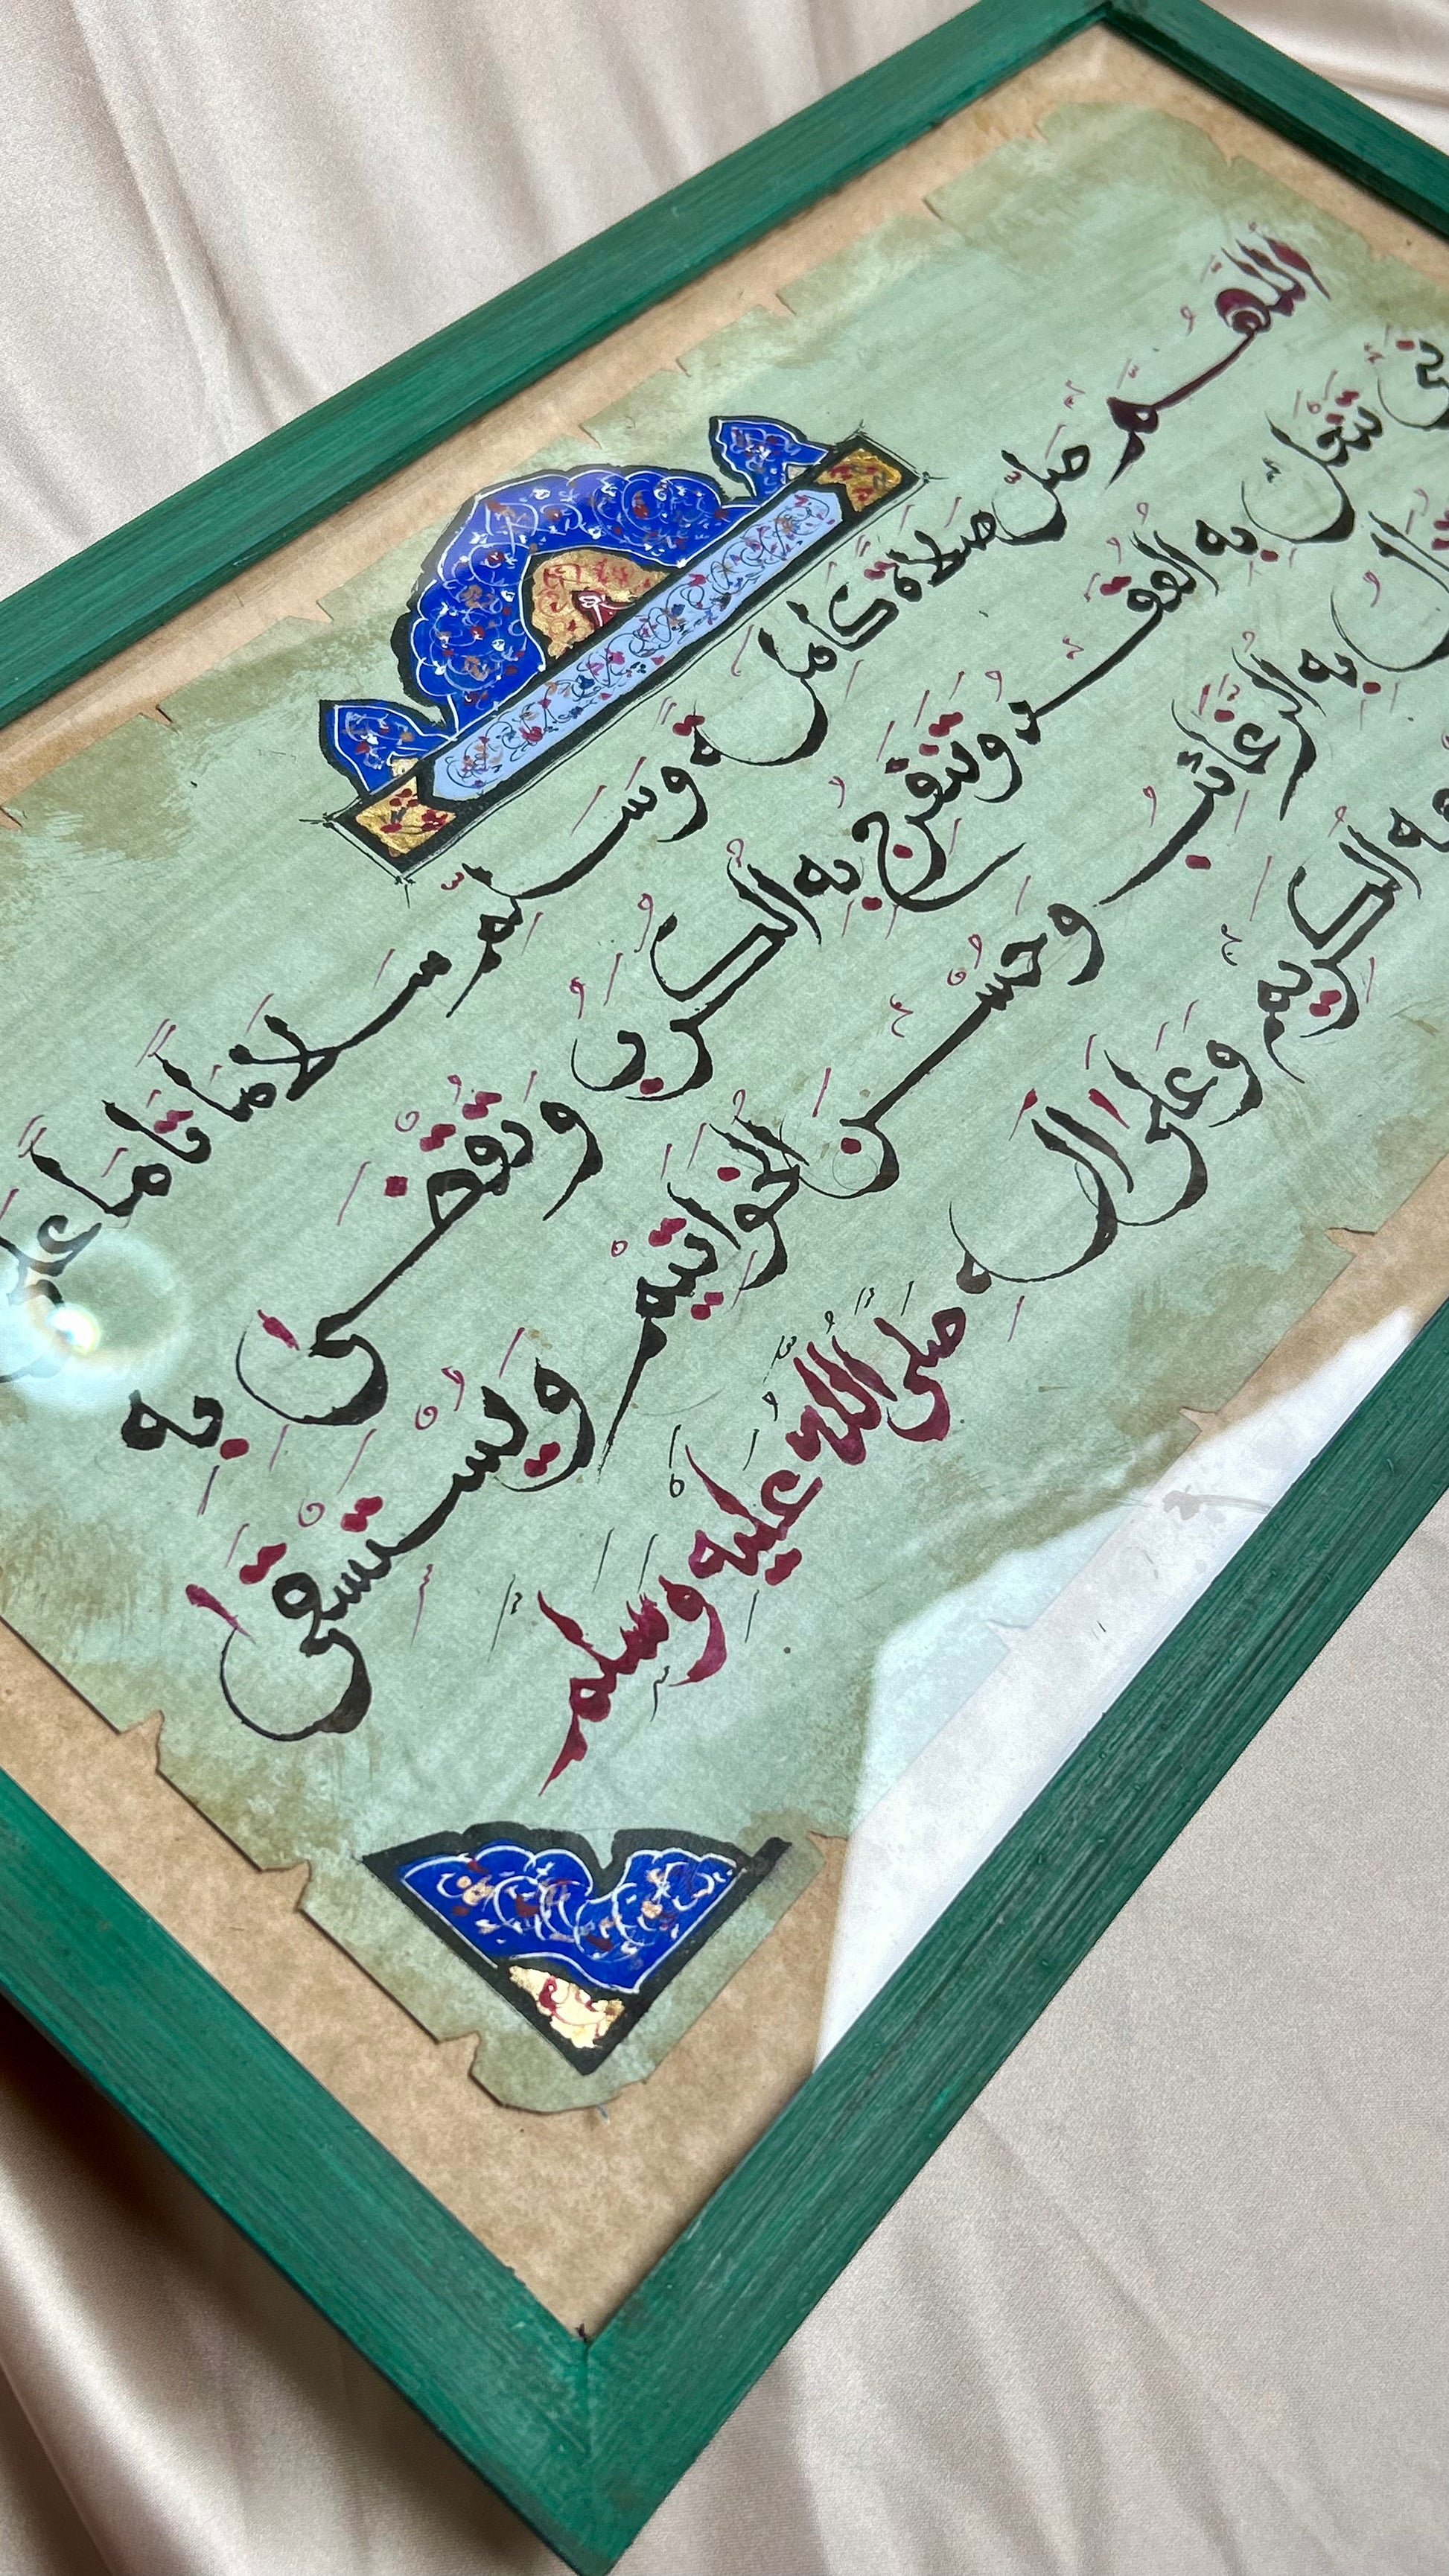 اللهم صل صلاة كاملة وسلم سلاما تاما
تنحل به العقد وتنفرج به الكرب وتقضى به
به الرغائب وحسن الخواتيم ويستسقى
الكريم وعلى اله
صلى الله عليه وسلم